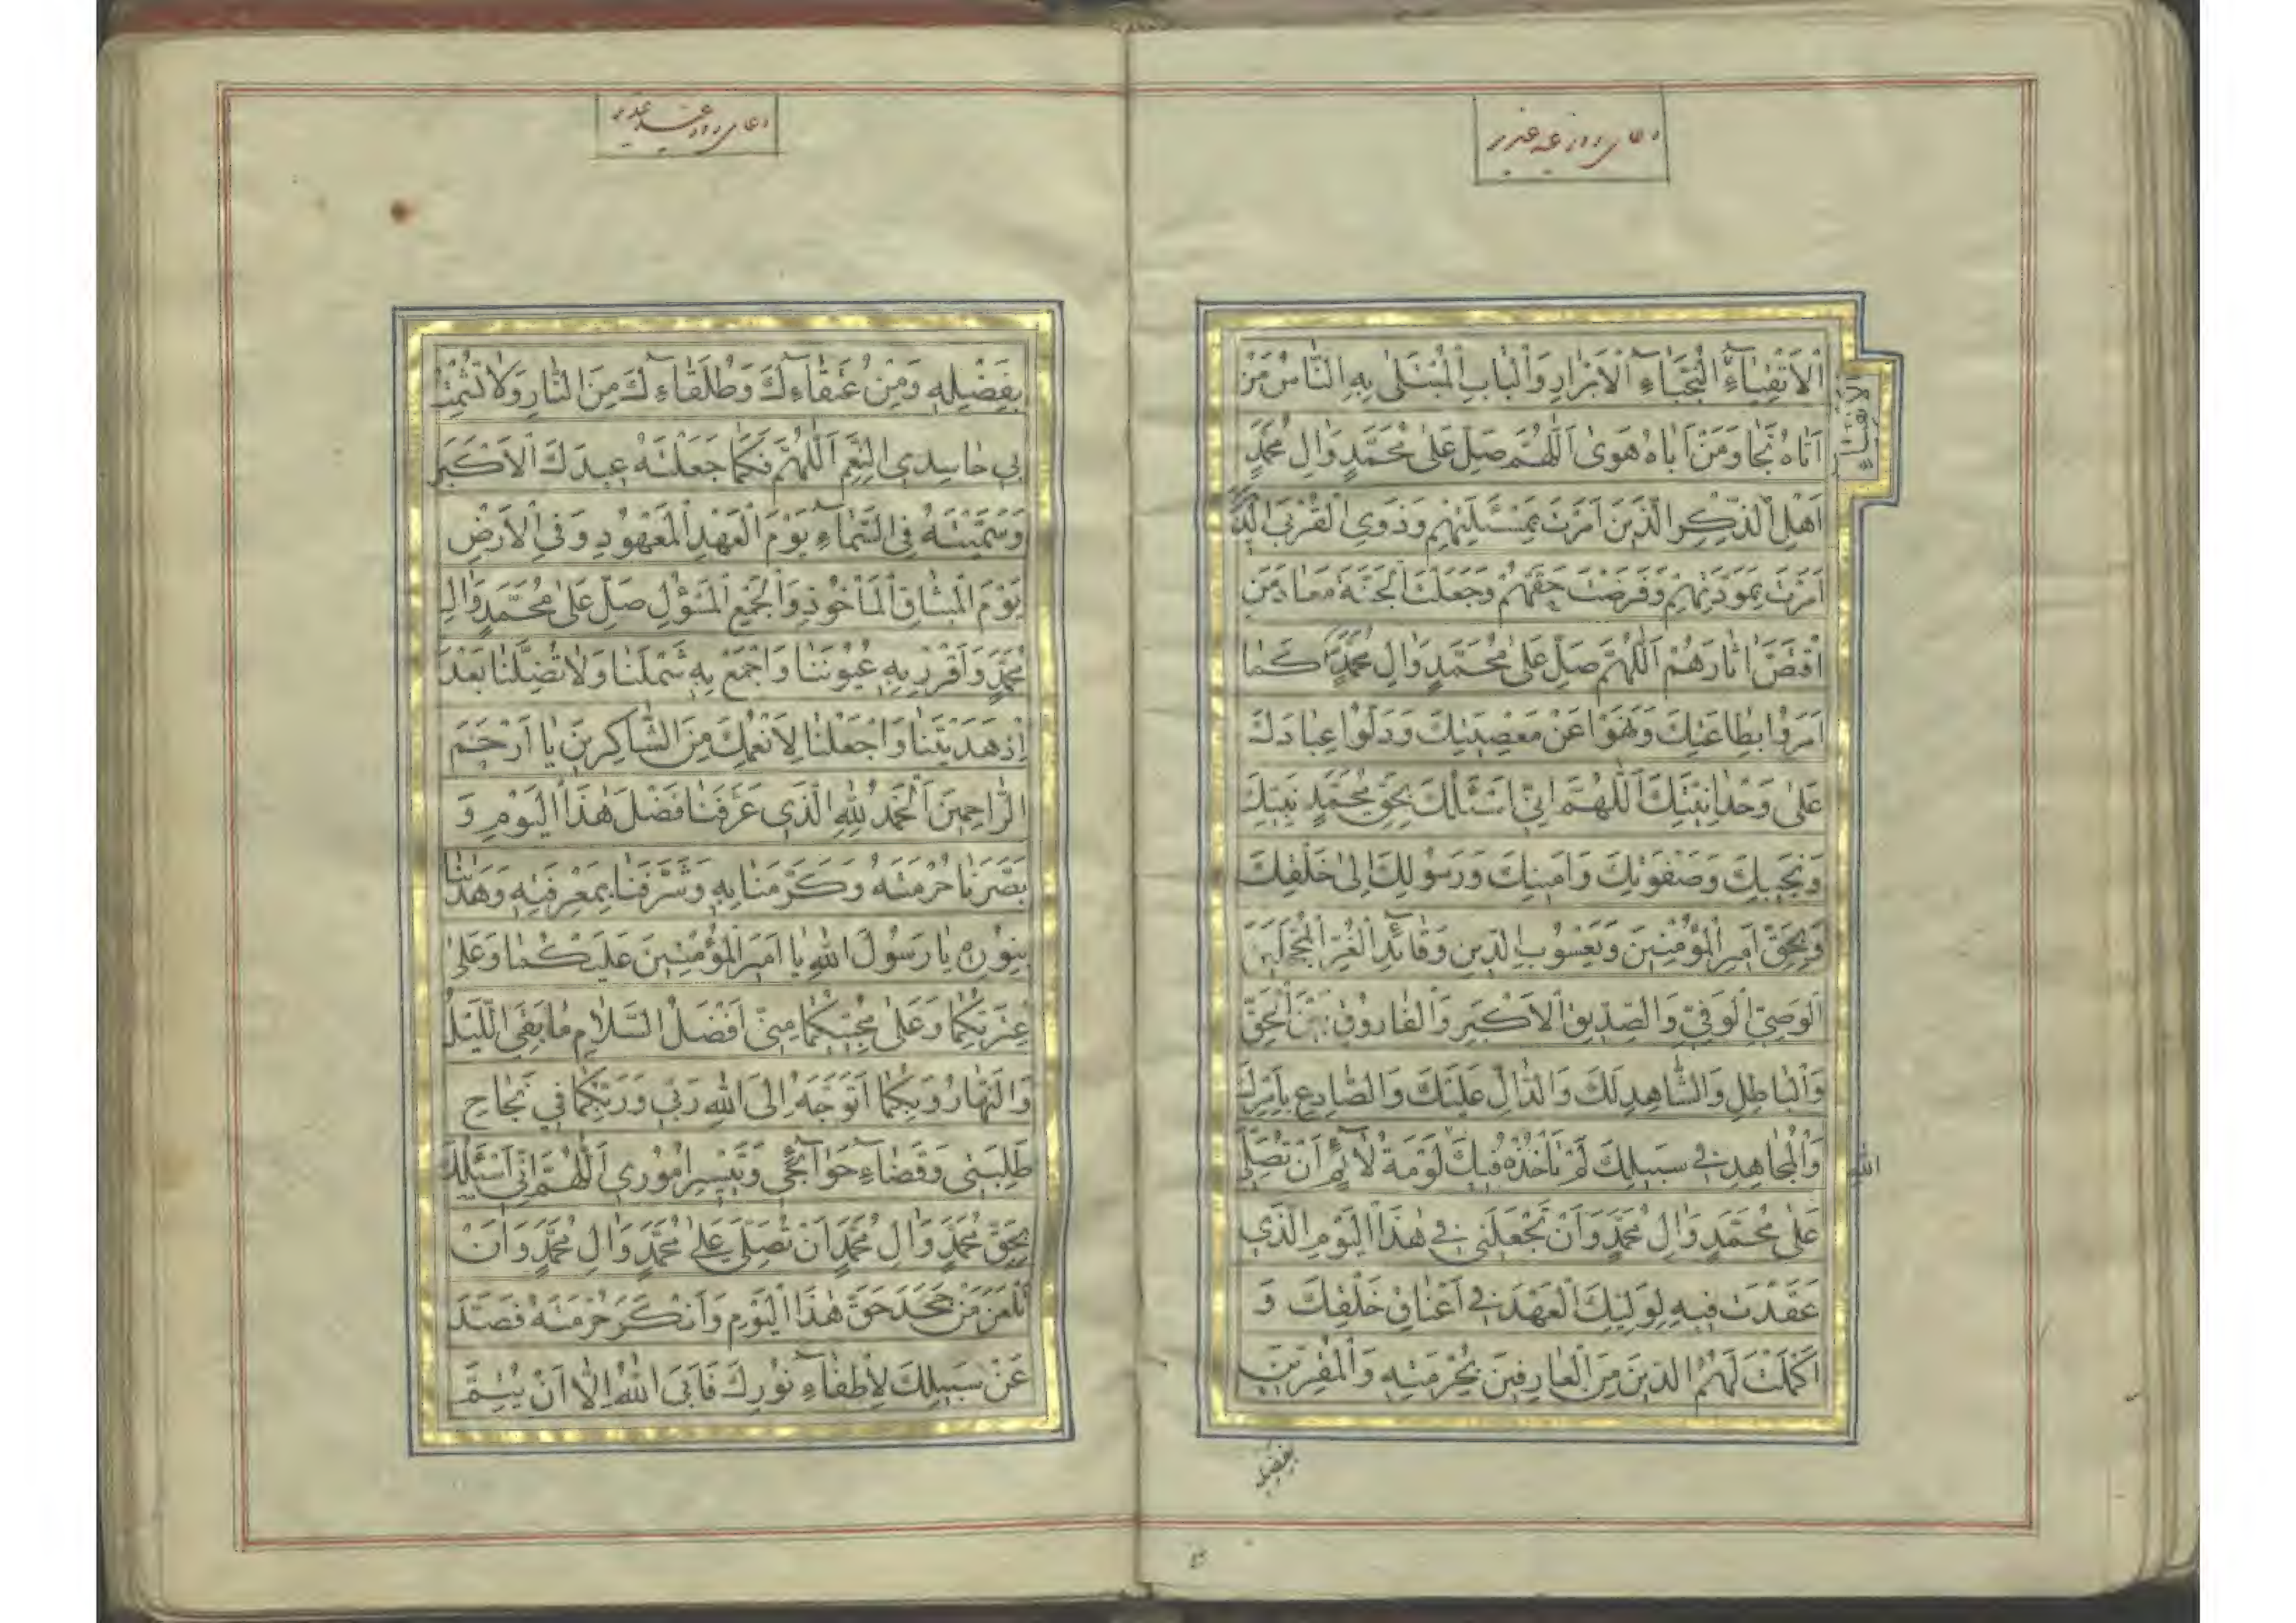 دعای روز عید غدیر
اَلْاَتْقِیٰاۤءِ النُّجَبٰاۤءِ الْاَبْرٰارِ وَالْبٰابِ الْمُبْتَلٰی بِهِ النّٰاسُ مَنْ
اَتٰاهُ نَجٰا وَمَنْ اَبٰاهُ هَوٰی اَللّٰهُمَّ صَلِّ عَلٰی مُحَمَّدٍ وَاٰلِ مُحَمَّدٍ
اَهْلِ الذِّکْرِ الَّذینَ اَمَرْتَ بِمَسْئَلَتِهِمْ وَذَوِی الْقُرْبَی الَّذینَ
اَمَرْتَ بِمَوَدَّتِهِمْ وَفَرَضْتَ حَقَّهُمْ وَجَعَلْتَ الْجَنَّةَ مَعٰادَ مَنِ
اقْتَصَّ اٰثٰارَهُمْ اَللّٰهُمَّ صَلِّ عَلٰی مُحَمَّدٍ وَاٰلِ مُحَمَّدٍ کَمٰا
اَمَرُوا بِطٰاعَتِکَ وَنَهَوْا عَنْ مَعْصِیَتِکَ وَدَلُّوا عِبٰادَکَ
عَلٰی وَحْدٰانِیَّتِکَ اَللّٰهُمَّ اِنّی اَسْئَلُکَ بِحَقِّ مُحَمَّدٍ نَبِیِّکَ
وَنَجیبِکَ وَصَفْوَتِکَ وَاَمینِکَ وَرَسُولِکَ اِلٰی خَلْقِکَ
وَبِحَقِّ اَمیرِ الْمُؤْمِنینَ وَیَعْسُوبِ الدّینِ وَقٰاۤئِدِ الْغُرِّ الْمُحَجَّلینَ
اَلْوَصِیِّ الْوَفِیِّ وَالصِّدّیقِ الْاَکْبَرِ وَالْفٰارُوقِ بَیْنَ الْحَقِّ
وَالْبٰاطِلِ وَالشّٰاهِدِ لَکَ وَالدّٰالِّ عَلَیْکَ وَالصّٰادِعِ بِاَمْرِکَ
وَالْمُجٰاهِدِ فی سَبیلِکَ لَمْ تَأْخُذْهُ فیکَ لَوْمَةُ لٰاۤئِمٍ اَنْ تُصَلِّیَ
عَلٰی مُحَمَّدٍ وَاٰلِ مُحَمَّدٍ وَاَنْ تَجْعَلَنی فی هٰذَا الْیَوْمِ الَّذی
عَقَدْتَ فیهِ لِوَلِیِّکَ الْعَهْدَ فی اَعْنٰاقِ خَلْقِکَ وَ
اَکْمَلْتَ لَهُمُ الدّینَ مِنَ الْعٰارِفینَ بِحُرْمَتِهِ وَالْمُقِرّینَ
بفضله
دعای روز عید غدیر
بِفَضْلِهِ وَمِنْ عُتَقٰاۤءِکَ وَطُلَقٰاۤءِکَ مِنَ النّٰارِ وَلٰا تُشْمِتْ
بی حٰاسِدِی النِّعَمِ اَللّٰهُمَّ فَکَمٰا جَعَلْتَهُ عیدَکَ الْاَکْبَرَ
وَسَمَّیْتَهُ فِی السَّمٰاۤءِ یَوْمَ الْعَهْدِ الْمَعْهُودِ وَفِی الْاَرْضِ
یَوْمَ الْمیثٰاقِ الْمَأْخُوذِ وَالْجَمْعِ الْمَسْؤُلِ صَلِّ عَلٰی مُحَمَّدٍ وَاٰلِ
مُحَمَّدٍ وَاَقْرِرْ بِهِ عُیُونَنٰا وَاجْمَعْ بِهِ شَمْلَنٰا وَلٰا تُضِلَّنٰا بَعْدَ
اِذْ هَدَیْتَنٰا وَاجْعَلْنٰا لِاَنْعُمِکَ مِنَ الشّٰاکِرینَ یٰا اَرْحَمَ
الرّٰاحِمینَ اَلْحَمْدُ لِلّٰهِ الَّذی عَرَّفَنٰا فَضْلَ هٰذَا الْیَوْمِ وَ
بَصَّرَنٰا حُرْمَتَهُ وَکَرَّمَنٰا بِهِ وَشَرَّفَنٰا بِمَعْرِفَتِهِ وَهَدٰانٰا
بِنُورِهِ یٰا رَسُولَ اللهِ یٰا اَمیرَ الْمُؤْمِنینَ عَلَیْکُمٰا وَعَلٰی
عِتْرَتِکُمٰا وَعَلٰی مُحِبّیکُمٰا مِنّی اَفْضَلُ السَّلٰامِ مٰا بَقِیَ اللَّیْلُ
وَالنَّهٰارُ وَبِکُمٰا اَتَوَجَّهُ اِلَی اللهِ رَبّی وَرَبِّکُمٰا فی نَجٰاحِ
طَلِبَتی وَقَضٰاۤءِ حَوٰاۤئِجی وَتَیْسیرِ اُمُوری اَللّٰهُمَّ اِنّی اَسْئَلُکَ
بِحَقِّ مُحَمَّدٍ وَاٰلِ مُحَمَّدٍ اَنْ تُصَلِّیَ عَلٰی مُحَمَّدٍ وَاٰلِ مُحَمَّدٍ وَاَنْ
تَلْعَنَ مَنْ جَحَدَ حَقَّ هٰذَا الْیَوْمِ وَاَنْکَرَ حُرْمَتَهُ فَصَدَّ
عَنْ سَبیلِکَ لِاِطْفٰاۤءِ نُورِکَ فَاَبَی اللهُ اِلّٰا اَنْ یُتِمَّ